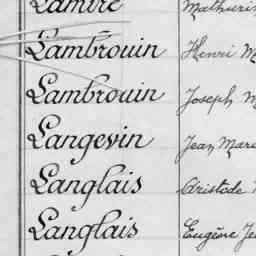 Lamire Mathurin
Lambrouin Henri M
Lambrouin Joseph M
Langevin Jean Mar
Langlais Aristide
Langlais Eugène Je